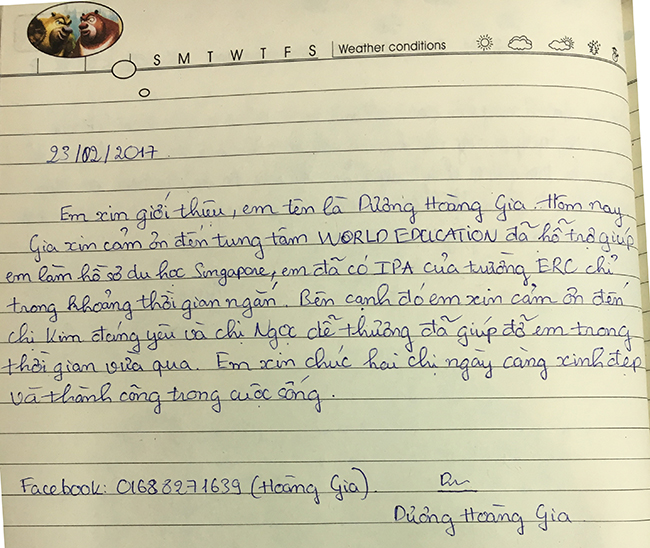 S M T W T F S Weather conditions
23/02/2017.
Em xin giới thiệu, em tên là Dương Hoàng Gia. Hôm nay
Gia xin cảm ơn đến tung tâm WORLD EDUCATION đã hỗ trợ giúp
em làm hồ sơ du học Singapore, em đã có IPA của trường ERC chỉ
trong khoảng thời gian ngắn. Bên cạnh đó em xin cảm ơn đến
chị Kim đáng yêu và chị Ngọc dễ thương đã giúp đỡ em trong
thời gian vừa qua. Em xin chúc hai chị ngày càng xinh đẹp
và thành công trong cuộc sống.
Facebook: 01683271639 (Hoàng Gia).
Dương Hoàng Gia